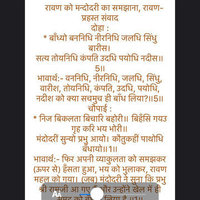 रावण को मन्दोदरी का समझाना, रावण-
प्रहस्त संवाद
दोहा :
* बाँध्यो बननिधि नीरनिधि जलधि सिंधु
बारीस।
सत्य तोयनिधि कंपति उदधि पयोधि नदीस॥
5॥
भावार्थ:- वननिधि, नीरनिधि, जलधि, सिंधु,
वारीश, तोयनिधि, कंपति, उदधि, पयोधि,
नदीश को क्या सचमुच ही बाँध लिया?॥5॥
चौपाई :
* निज बिकलता बिचारि बहोरी॥ बिहँसि गयउ
गृह करि भय भोरी॥
मंदोदरीं सुन्यो प्रभु आयो। कौतुकहीं पाथोधि
बँधायो॥1॥
भावार्थ:- फिर अपनी व्याकुलता को समझकर
(ऊपर से) हँसता हुआ, भय को भुलाकर, रावण
महल को गया। (जब) मंदोदरी ने सुना कि प्रभु
श्री रामजी आ गए उन्होंने खेल में ही